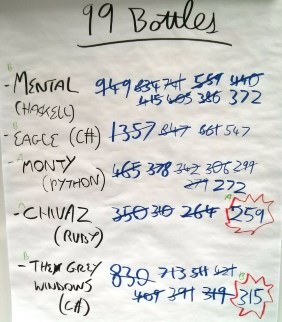 99 Bottles
- MENTAL 949 834 741 559 440
(HASKELL) 415 405 386 372
- EAGLE (C#) 1357 847 661 547
- MONTY 465 378 342 306 299
(PYTHON) 279 272
- CHIVAZ 350 310 264 259
(RUBY)
- THE GREY 830 713 511 421
WINDOWS 409 391 319 315
(C#)